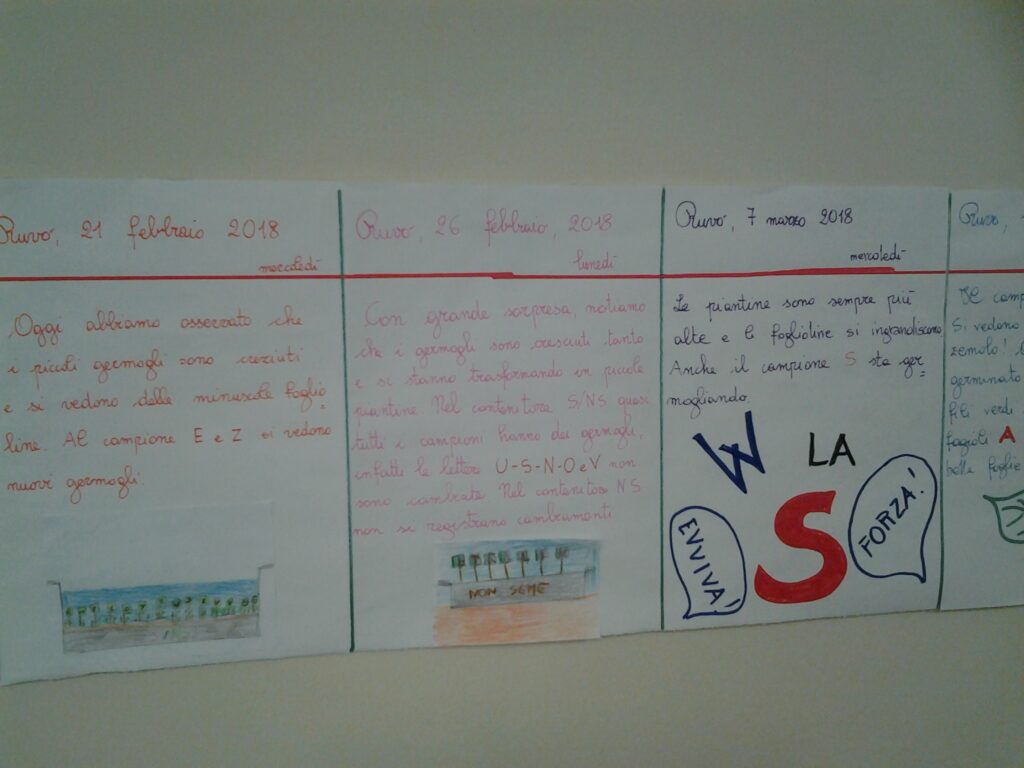 Ruvo, 21 febbraio 2018
mercoledì
Oggi abbiamo osservato che
i piccoli germogli sono cresciuti
e si vedono delle minuscole foglio
line. Al campione E e Z si vedono
nuovi germogli.
Ruvo, 26 febbraio, 2018
lunedì
Con grande sorpresa, notiamo
che i germogli sono cresciuti tanto
e si stanno trasformando in piccole
piantine. Nel contenitore S/NS quasi
tutti i campioni hanno dei germogli,
infatti le lettere U-S-N-O e V non
sono cambiate. Nel contenitore NS
non si registrano cambiamenti.
NON SEME
Ruvo, 7 marzo 2018
mercoledì
Le piantine sono sempre più
alte e le foglioline si ingrandiscono
Anche il campione S sta ger=
mogliando.
W LA
S
EVVIVA!
FORZA!
Ruvo,
Il camp
Si vedono
zemolo!
germinato
fili verdi
fagioli A
belle foglie